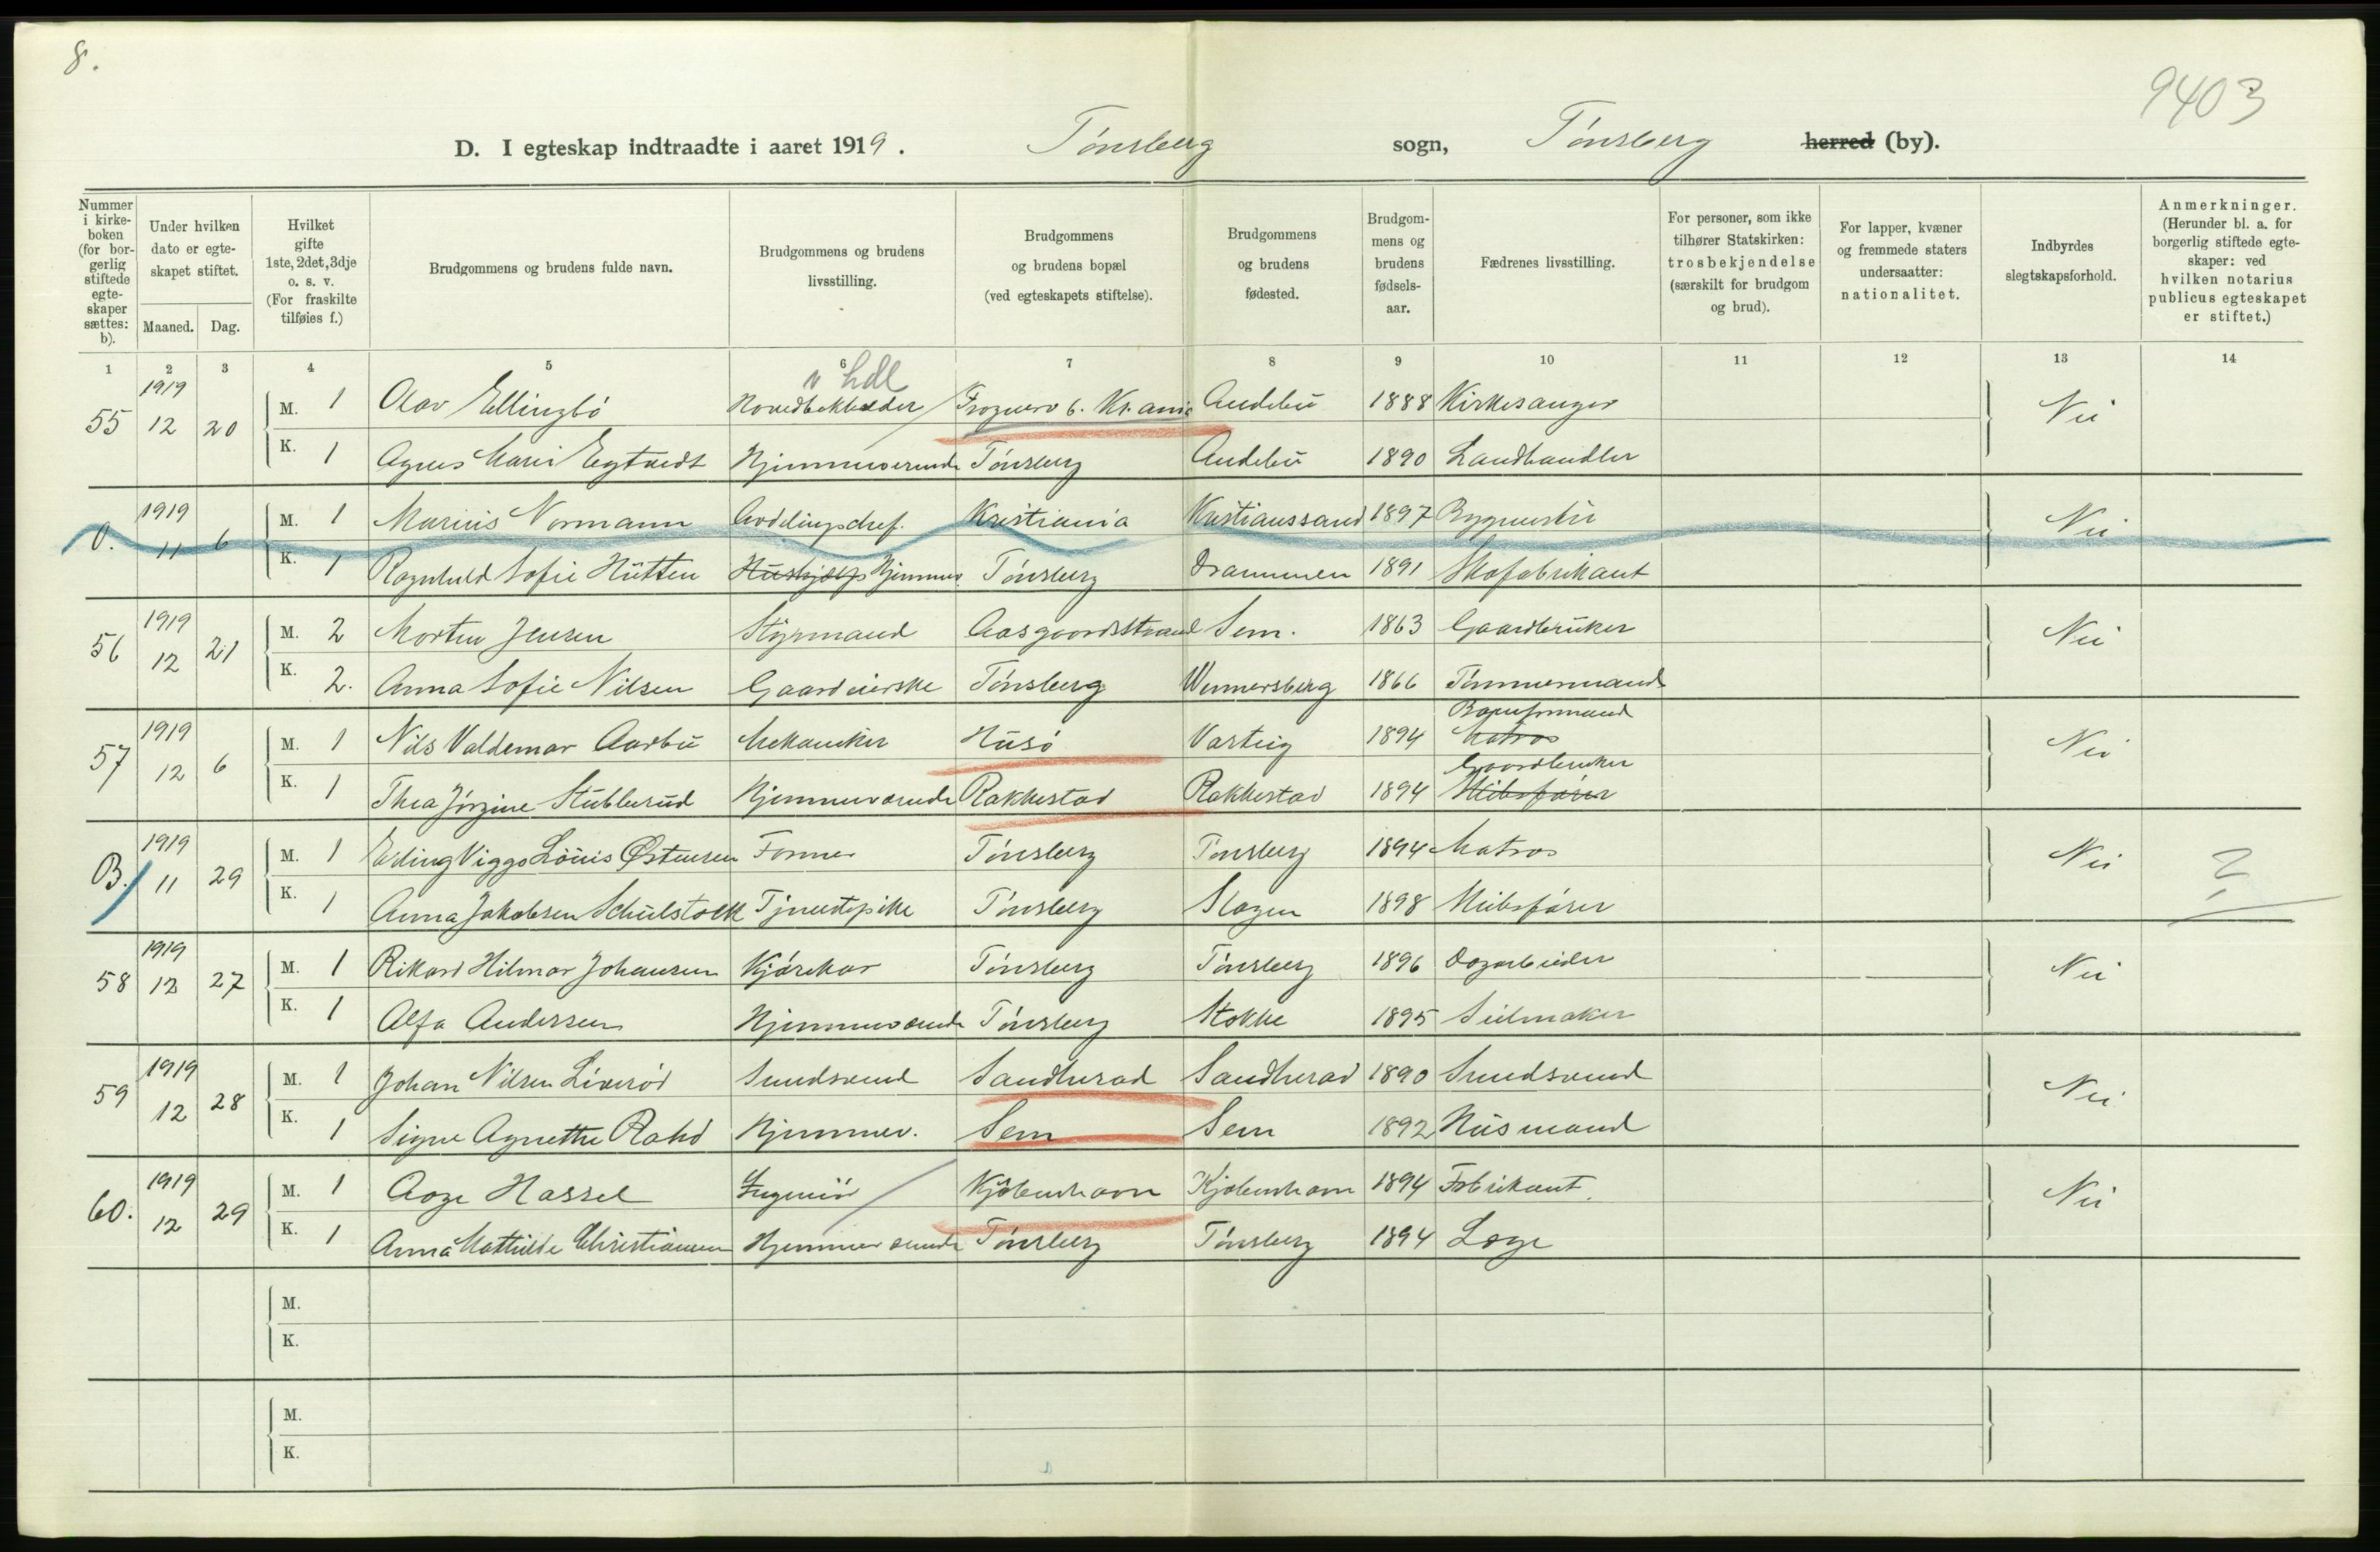 8.
9403
D. I egteskap indtraadte i aaret 1919. Tönsberg sogn, Tönsberg herred (by).
Nummer i kirkeboken (for borgerlig stiftede egteskaper sættes: b).
Under hvilken dato er egteskapet stiftet.
Maaned. Dag.
Hvilket gifte 1ste, 2det, 3dje o. s. v. (For fraskilte tilføies f.)
Brudgommens og brudens fulde navn.
Brudgommens og brudens livsstilling.
Brudgommens og brudens bopæl (ved egteskapets stiftelse).
Brudgommens og brudens fødested.
Brudgommens og brudens fødselsaar.
Fædrenes livsstilling.
For personer, som ikke tilhører Statskirken: trosbekjendelse (særskilt for brudgom og brud).
For lapper, kvæner og fremmede staters undersaatter: nationalitet.
Indbyrdes slegtskapsforhold.
Anmerkninger. (Herunder bl. a. for borgerlig stiftede egteskaper: ved hvilken notarius publicus egteskapet er stiftet.)
1 2 3 4 5 6 7 8 9 10 11 12 13 14
hdl
55 1919 12 20 M. 1 Olav Ellingbö Hovedbokholder Frogner 6. Kr.ania Andebu 1888 Kirkesanger Nei
K. 1 Agnes Marie Egtvedt Hjemmeværende Tönsberg Andebu 1890 Landhandler
0. 1919 11 6 M. 1 Marius Normann Avdelingschef. Kristiania Kristianssand 1897 Bygmester Nei
K. 1 Ragnhild Sofie Hütten Hushjælp Hjemmev. Tönsberg Drammen 1891 Skofabrikant
56 1919 12 21 M. 2 Morten Jensen Styrmand Aasgaardsstrand Sem. 1863 Gaardbruker Nei
K. 2. Anna Sofie Nilsen Gaardeierske Tönsberg Wennersberg 1866 Tömmermand
57 1919 12 6 M. 1 Nils Valdemar Aarbu Mekaniker Husö Varteig 1894 Matros Nei
Gaardbruker
K. 1 Thea Jörgine Stubberud Hjemmeværende Rakkestad Rakkestad 1894 Skibsförer
B. 1919 11 29 M. 1 Erling Viggo Louis Østensen Former Tönsberg Tönsberg 1894 Matros Nei
K. 1 Anna Jakobsen Schulstock Tjenestepike Tönsberg Slagen 1898 Skibsförer
58 1919 12 27 M. 1 Rikard Hilmar Johansen Kjörekar Tönsberg Tönsberg 1896 Dagarbeider Nei
K. 1 Alfa Andersen Hjemmeværende Tönsberg Stokke 1895 Seilmaker
59 1919 12 28 M. 1 Johan Nilsen Liveröd Smedsvend Sandherad Sandherad 1890 Smedsvend Nei
K. 1 Signe Agnethe Hjemmev. Sem Sem 1892 Husmand
60. 1919 12 29 M. 1 Aage Hassel Ingeniör Kjöbenhavn Kjöbenhavn 1894 Fabrikant. Nei
K. 1 Anna Mathilde Christiansen Hjemmeværende Tönsberg Tönsberg 1894 Læge
M.
K.
M.
K.